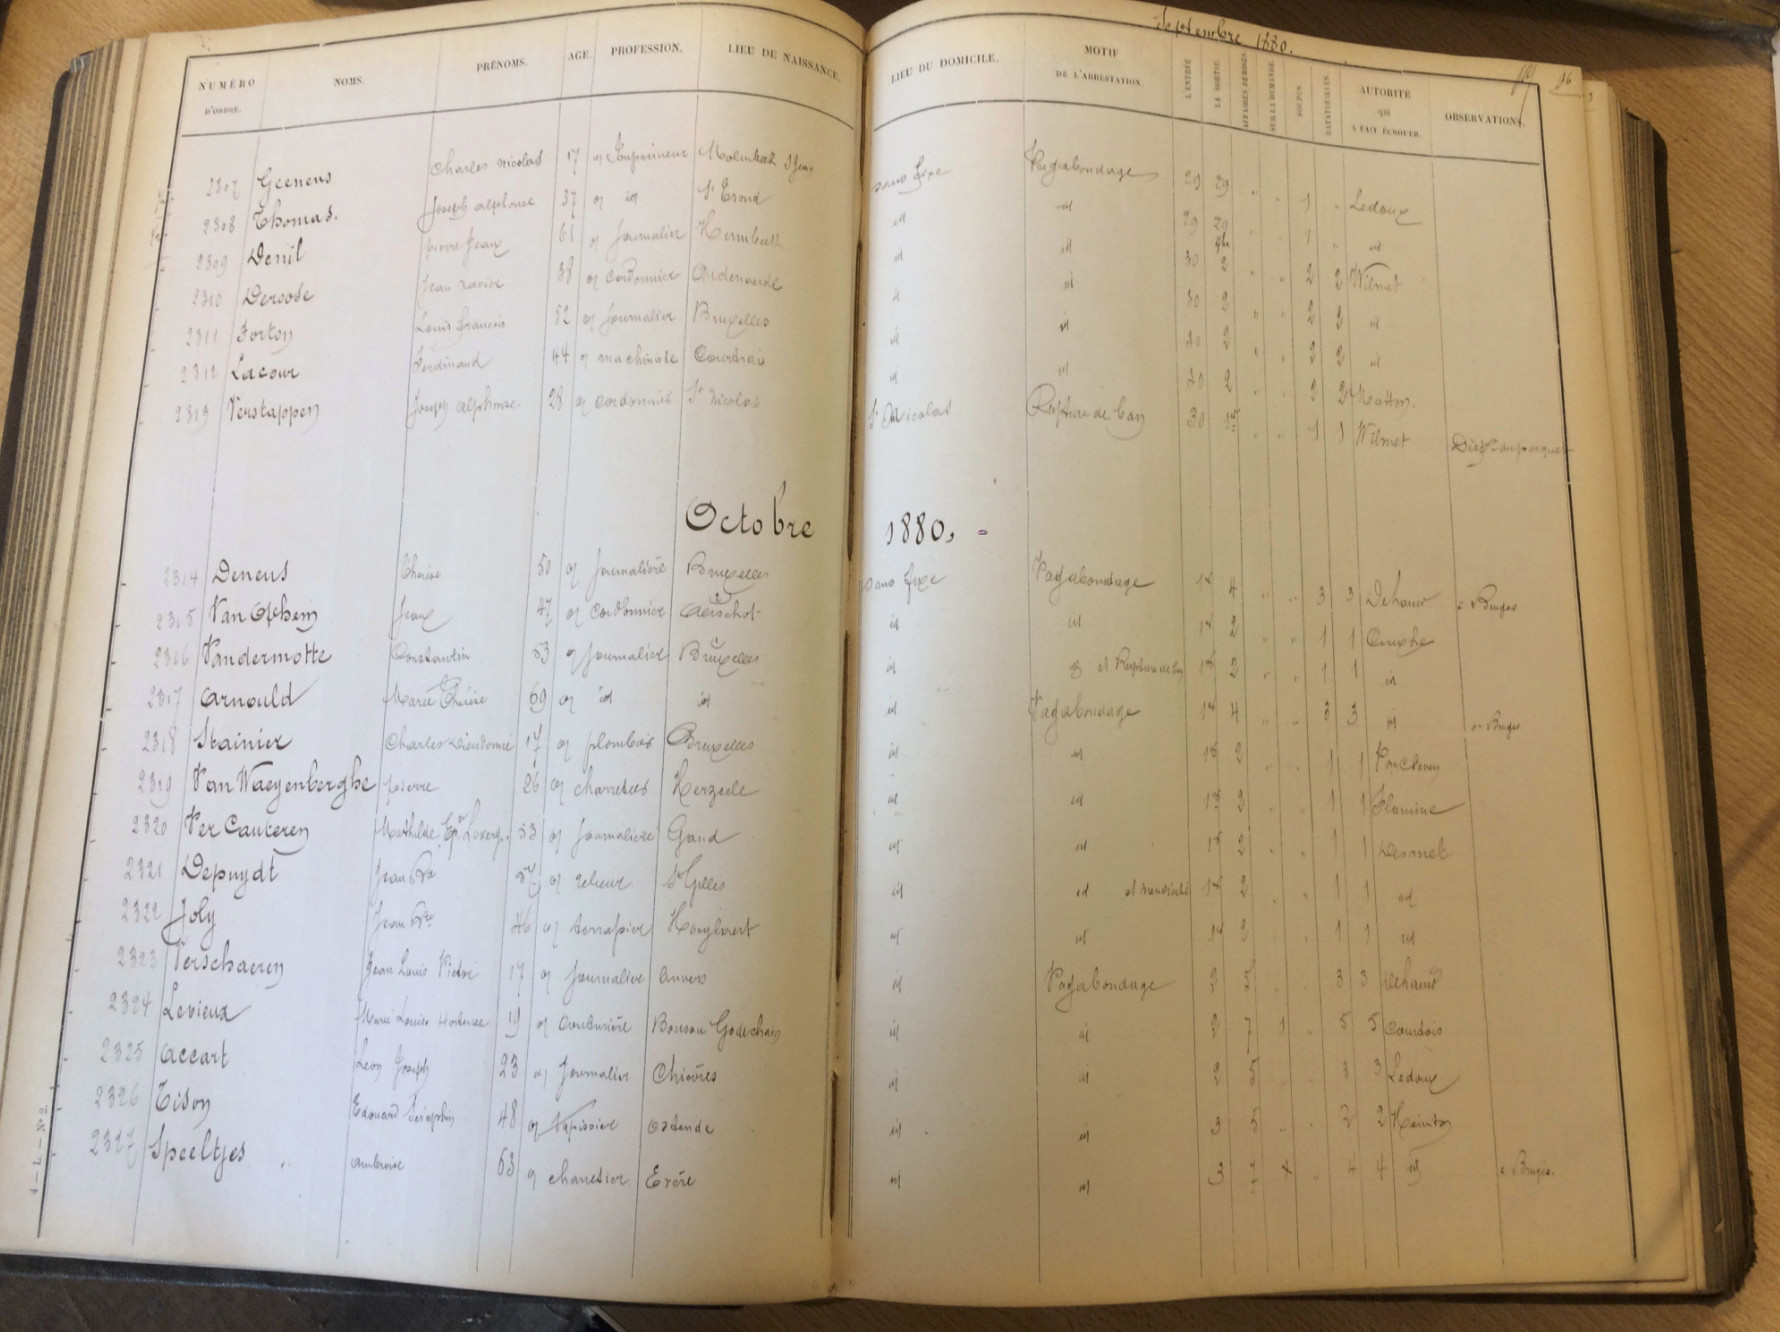 Septembre 1880.
96
NUMÉRO D'ORDRE. NOMS. PRÉNOMS. AGE. PROFESSION. LIEU DE NAISSANCE. LIEU DU DOMICILE. MOTIF DE L'ARRESTATION. L'ENTRÉE LA SORTIE. SUR LA DEMANDE. SOUPES. AUTORITÉ QUI A FAIT ÉCROUER. OBSERVATIONS.
2307 Geenens Charles Nicolas 17 Imprimeur Molenbeek St Jean sans fixe Vagabondage 29 29 1 Ledoux
2308 Thomas. Joseph Alphonse 37 id St Trond id id 29 29 1 id
2309 Denil Pierre Jean 61 journalier id id 30 2 2 2 Wilmet
2310 Deroose Jean Xavier 38 cordonnier Audenaerde id id 30 2 2 2 id
2311 Forton Louis François 52 journalier Bruxelles id id 30 2 2 2 id
2312 Lacour Ferdinand 44 machiniste Courtrai id id 30 2 2 2
2313 Verstappen Joseph Alphonse 28 cordonnier St Nicolas St Nicolas Rupture de ban 30 1 1 Wilmet
Octobre 1880.
2314 Deneus Thérèse 50 journalière Bruxelles sans fixe Vagabondage 4 3 3 Bruges
2315 Van Ophem Jean 47 cordonnier Aerschot id id 2 1 1
2316 Vandermotte Constantin 53 journalier Bruxelles id et Rupture de ban 2 1 1 id
2317 Arnould Marie Thérèse 69 id id id Vagabondage 4 3 3 id Bruges
2318 Stainier Charles Dieudonné 17 plombier Bruxelles id id 2 1 1
2319 Van Waeyenberghe Pierre 26 charretier Herzeele id id 2 1 1 Flamine
2320 Ver Cauteren Mathilde 53 journalière Gand id id 2 1 1 Desmet
2321 Depuydt Jean Bte relieur St Gilles id id et mendicité 2 1 1 id
2322 Joly Jean Bte 46 terrassier Hoeylaert id id 2 1 1 id
2323 Verschaeren Jean Louis Victor 17 journalier Anvers id Vagabondage 2 5 3 3
2324 Levieux Marie Louise Hortense 19 couturière id id 2 7 1 5 5 Courtois
2325 Accart Leon Joseph 23 journalier Chièvres id id 2 5 3 3 Ledoux
2326 Tison Edouard Séraphin 48 tapissier Ostende id id 3 5 2 2
2327 Speeltjes Ambroise 63 charretier Evère id id 3 4 4 id Bruges.